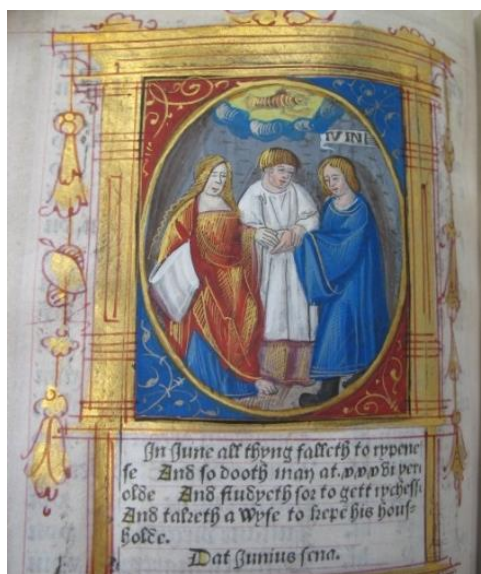 IVNI
In June all thyng falleth to rypene
se And so dooth man at .xxxvi yere
olde And studyeth for to gett rychesse
And taketh a Wyfe to kepe his hous=
holde.
Dat Junius fena.